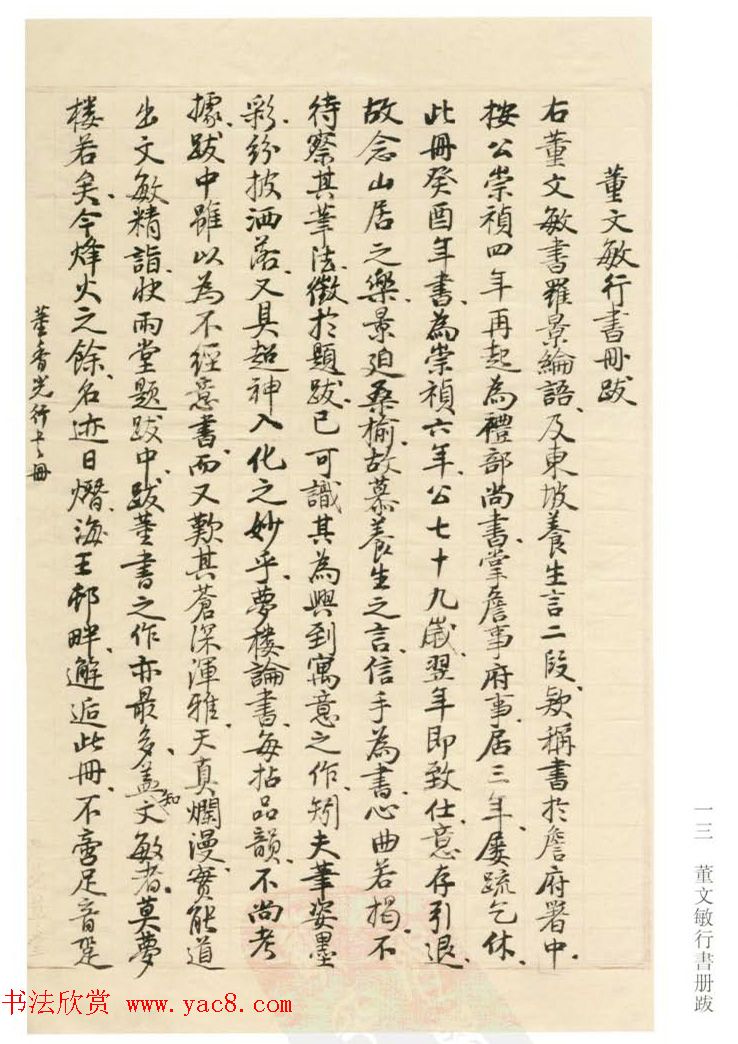 董文敏行書冊跋
右董文敏書羅景綸語、及東坡養生言二段、欵稱書於詹府署中、
按公崇禎四年再起為禮部尚書、掌詹事府事、居三年、屢疏乞休、
此冊癸酉年書、為崇禎六年、公七十九歲、翌年即致仕、意存引退、
故念山居之樂、景迫桑榆、故慕養生之言、信手為書、心曲若揭、不
待察其筆法、徵於題跋、已可識其為興到寓意之作、矧夫筆姿墨
彩、紛披洒落、又具超神入化之妙乎、夢樓論書、每拈品韻、不尚考
據、跋中雖以為不經意書、而又歎其蒼深渾雅、天真爛漫、實能道
出文敏精詣、快雨堂題跋中、跋董書之作亦最多、蓋知文敏者、莫夢
楼若矣、今烽火之餘、名迹日熸、海王邨畔、邂逅此冊、不啻足音跫
董香光行书冊
一三 董文敏行書册跋
书法欣赏 www.yac8.com